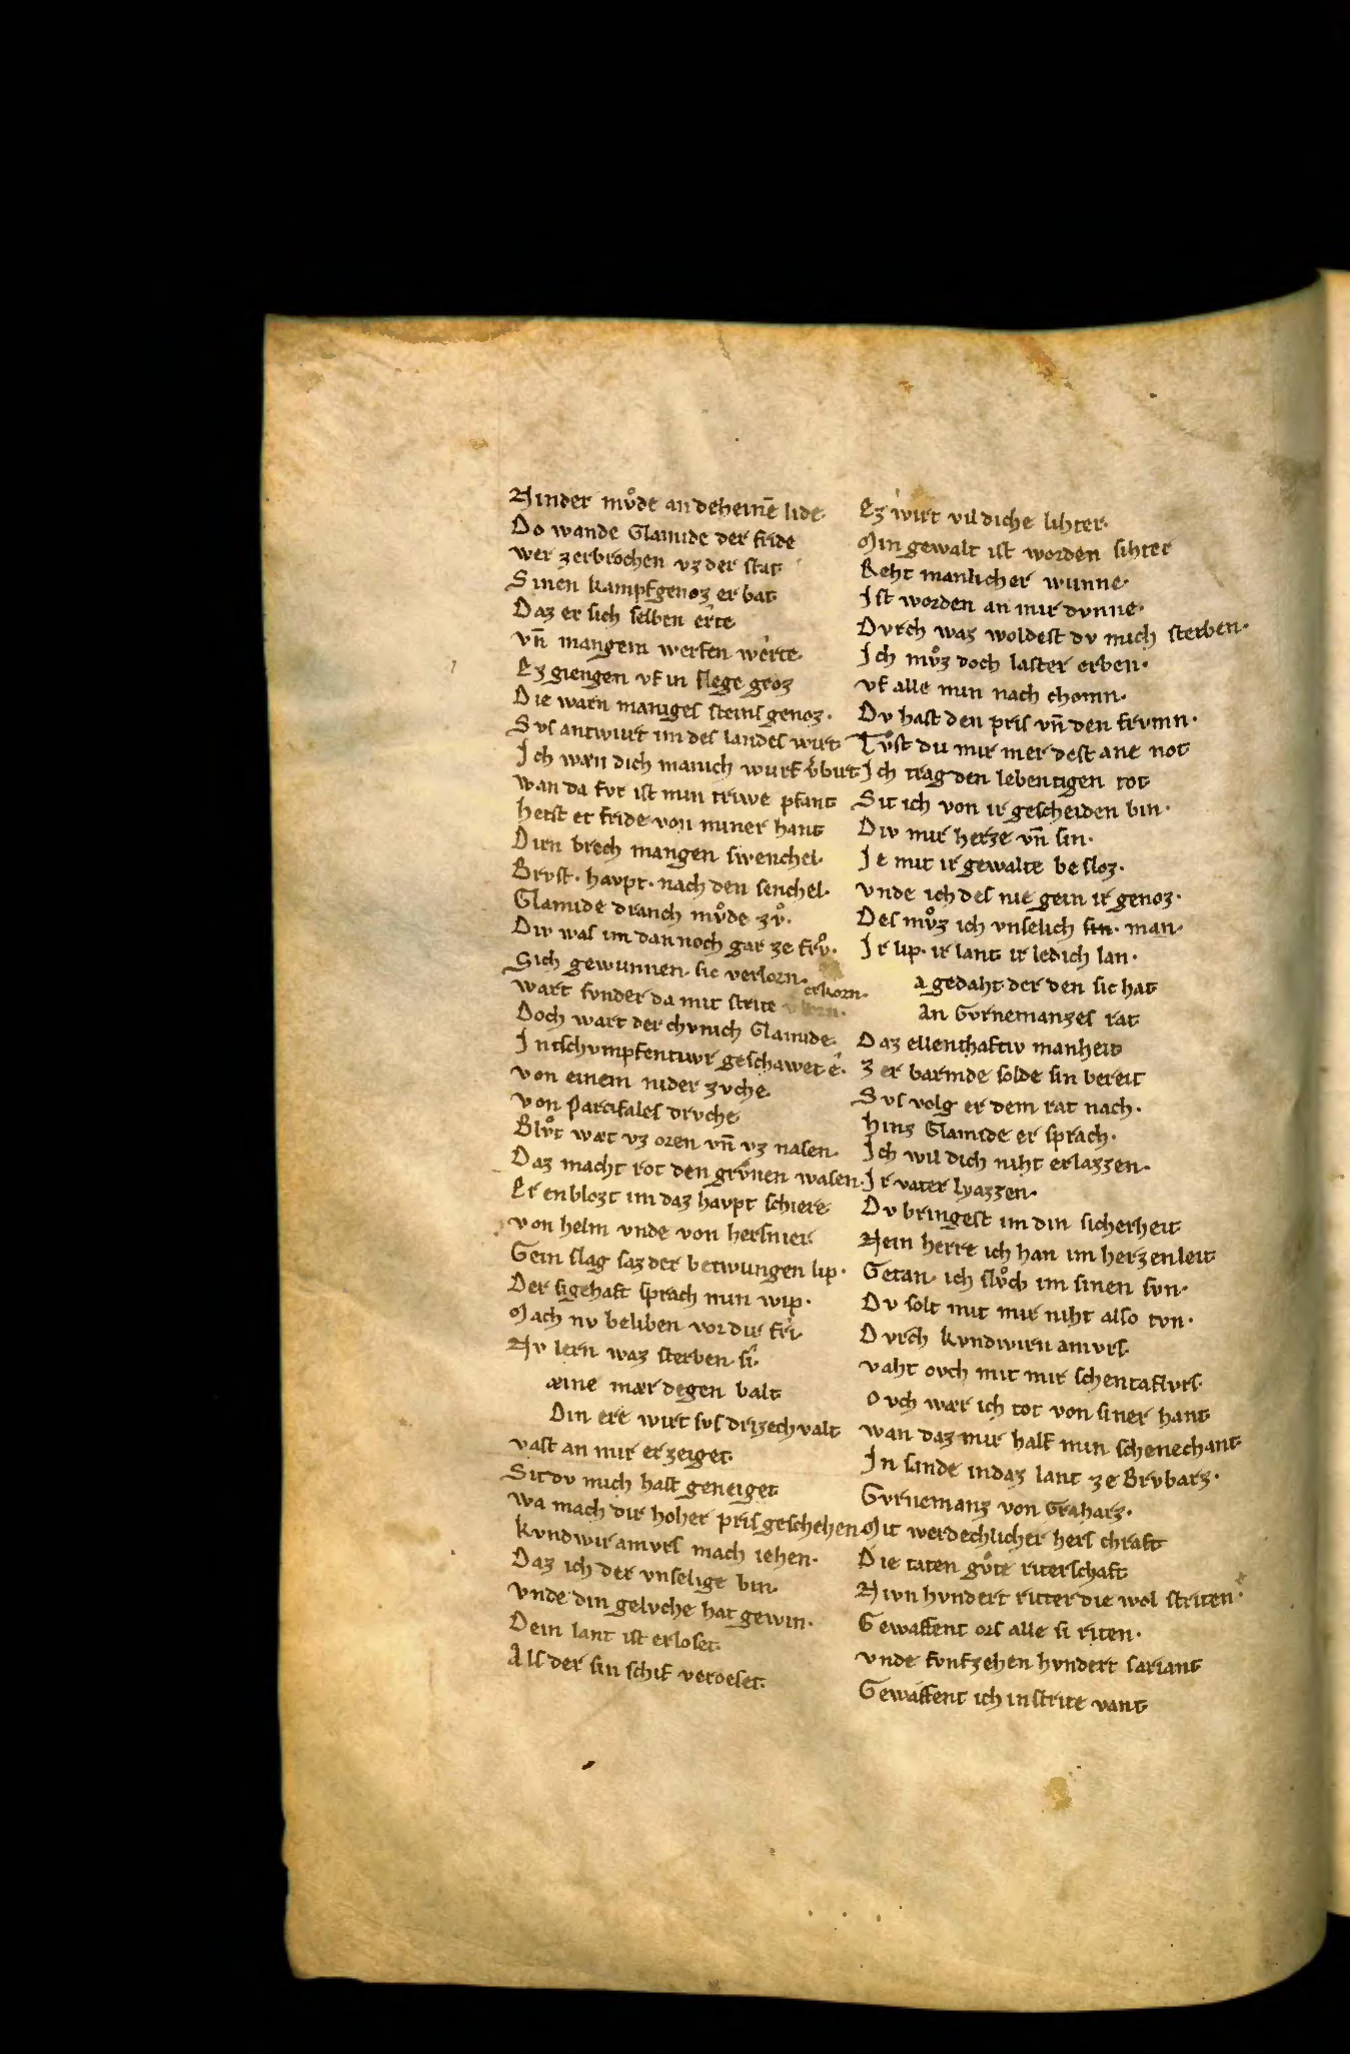 Ninder mvͦde an deheinē lide·
Do wande Clamide der fride
wer zerbrochen vz der stat
Sinen kampfgenoz er bat
Daz er sich selben erte
vn̄ mangem werfen werte·
Ez giengen vf in slege groz
Die warn maniges steins genoz·
Svs antwurt im des landes wirt
Ich wæn dich manich wurf v̾birt
wan da fvr ist min triwe pfant
hetst et fride von miner hant
Dirn brech mangen swenchel·
Brvst· havpt· nach den senchel·
Clamide dranch mvͦde zvͦ·
Div was im dannoch gar ze frvͦ·
Sich gewunnen· sic verlorn·
wart svnder da mit strite erkorn·
Doch wart der chvnich Clamide·
In tschvmpfentiwr geschawet ê·
von einem nider zvche
von Parcifales drvche
Blvͦt wæt vz oren vn̄ vz nasen·
Daz macht rot den grvͦnen wasen·
Er enblozt im daz havpt schiere
von helm vnde von hersnier
Gein slag saz der betwungen lip·
Der sigehaft sprach min wip·
Mach nv beliben vor dir fri
Nv lern waz sterben si·
æine mær degen balt
Din ere wirt svs drizech valt
vast an mir er zeiget·
Sit dv mich hast geneiget
wa mach dir hoher pris geschehen
kvndwir amvrs mach iehen·
Daz ich der vnselige bin
vnde din gelvche hat gewin·
Dein lant ist erloset·
Als der sin schif veroeset·
Ez wirt vil diche lihter·
Min gewalt ist worden sihter
Reht manlicher wunne·
Ist worden an mir dvnne·
Dvrch waz woldest dv mich sterben·
Ich mvͦz doch laster erben·
vf alle min nach chomn·
Dv hast den pris vn̄ den frvmn·
Tvͦst du mir mer dest ane not
Ich trag den lebentigen tot
Sit ich von ir gescheiden bin·
Div mir herze vn̄ sin·
Ie mit ir gewalte be sloz·
vnde ich des nie gein ir genoz·
Des mvͦz ich vnselich sin· man·
Ir lip· ir lant ir ledich lan·
a gedaht der den sic hat
an Gvrnemanzes rat
Daz ellenthaftiv manheit
Zer barmde solde sin bereit
Svs volg er dem rat nach·
hinz Clamide er sprach·
Ich wil dich niht erlazzen·
Ir vater lyazzen·
Dv bringest im din sicherheit
Nein herre ich han im herzenleit
Getan· ich slvͦch im sinen svn·
Dv solt mit mir niht also tvn·
Dvrch kvndwirn amvrs
vaht ovch mit mir schentaflvrs·
Ovch wær ich tot von siner hant
wan daz mir half min schenechant
In sande in daz lant ze Brvbarz·
Gvrnemanz von Graharz·
Mit werdechlicher hers chraft
Die taten gvͦte riterschaft
Nivn hvndert ritter die wol striten·
Gewaffent ors alle si riten·
vnde fvnfzehen hvndert sariant
Gewaffent ich in strite vant